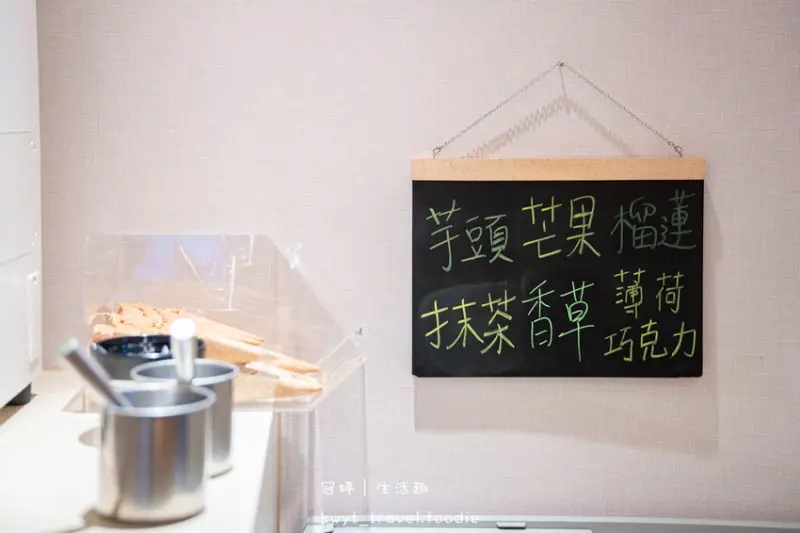 芋頭 芒果 榴蓮
抹茶 香草 薄荷
巧克力
冠婷｜生活趣
kwyt_travel.foodie